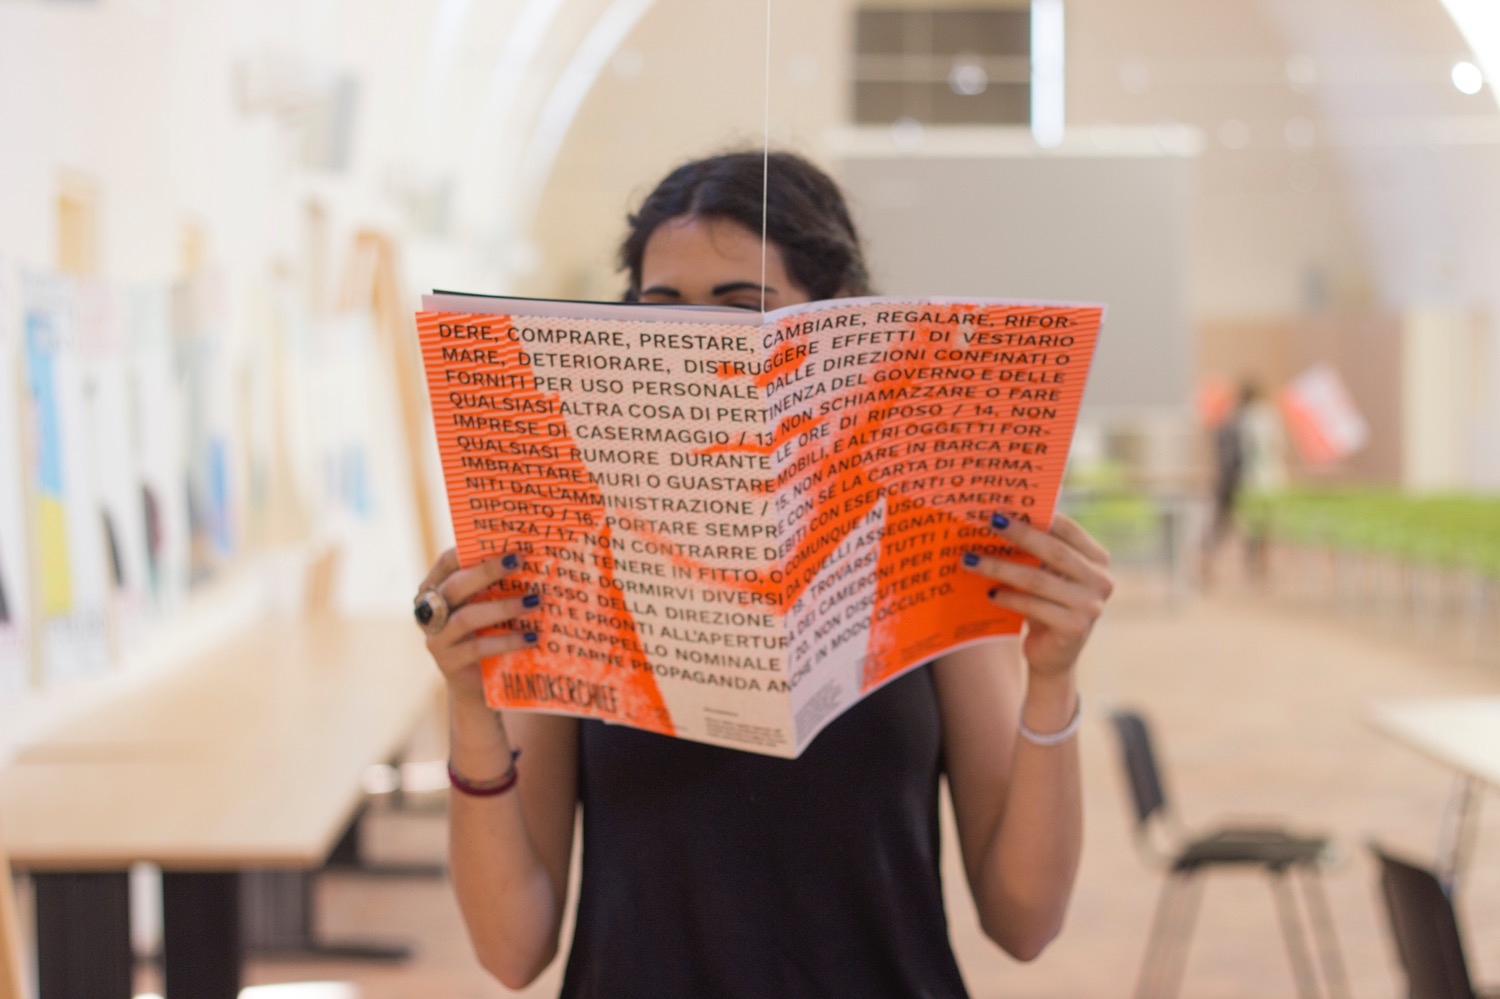 DERE, COMPRARE, PRESTARE, CAMBIARE, REGALARE, RIFOR-
MARE, DETERIORARE, DISTRUGGERE EFFETTI DI VESTIARIO
FORNITI PER USO PERSONALE DALLE DIREZIONI CONFINATI O
QUALSIASI ALTRA COSA DI PERTINENZA DEL GOVERNO E DELLE
IMPRESE DI CASERMAGGIO / 13. NON SCHIAMAZZARE O FARE
QUALSIASI RUMORE DURANTE LE ORE DI RIPOSO / 14. NON
IMBRATTARE MURI O GUASTARE MOBILI, E ALTRI OGGETTI FOR-
NITI DALL'AMMINISTRAZIONE / 15. NON ANDARE IN BARCA PER
DIPORTO / 16. PORTARE SEMPRE CON SÉ LA CARTA DI PERMA-
NENZA / 17. NON CONTRARRE DEBITI CON ESERCENTI O PRIVA-
TI / 18. NON TENERE IN FITTO, O COMUNQUE IN USO CAMERE O
ALI PER DORMIRVI DIVERSI DA QUELLI ASSEGNATI, SENZA
PERMESSO DELLA DIREZIONE / 19. TROVARSI TUTTI I GIO
TI E PRONTI ALL'APERTURA DEI CAMERONI PER RISPON-
DERE ALL'APPELLO NOMINALE / 20. NON DISCUTERE DI
O FARNE PROPAGANDA ANCHE IN MODO OCCULTO.
HANDKERCHIEF